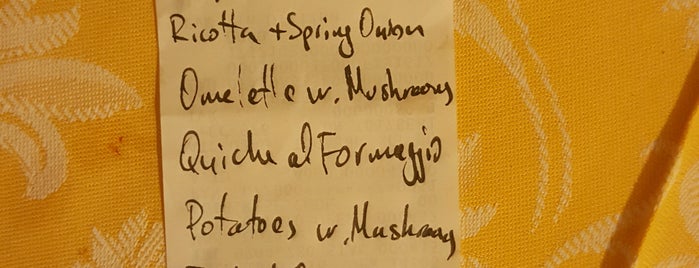 Ricotta + Spring Onion
Omelette w. Mushrooms
Quiche al Formaggio
Potatoes w. Mushrooms